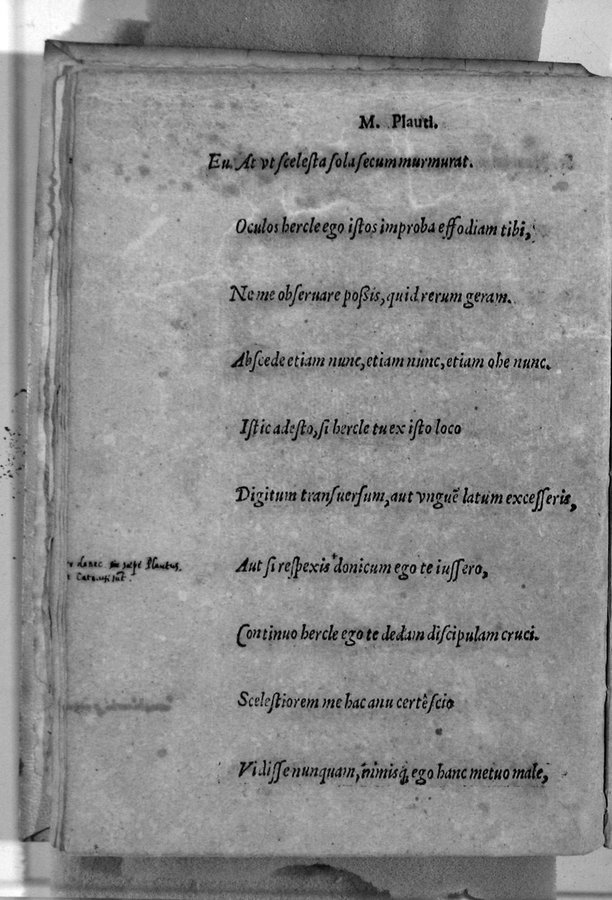 M. Plauti.
Eu. At vt scelesta sola secum murmurat.
Oculos hercle ego istos improba effodiam tibi,
Ne me obseruare poßis, quid rerum geram.
Abscede etiam nunc, etiam nunc, etiam ohe nunc.
Istic adesto, si hercle tu ex isto loco
Digitum transuersum, aut vnguẽ latum excesseris,
donec sæpe Plautus,
Aut si respexis donicum ego te iussero,
Continuo hercle ego te dedam discipulam cruci.
Scelestiorem me hac anu certê scio
Vidisse nunquam, nimisq́, ego hanc metuo male,